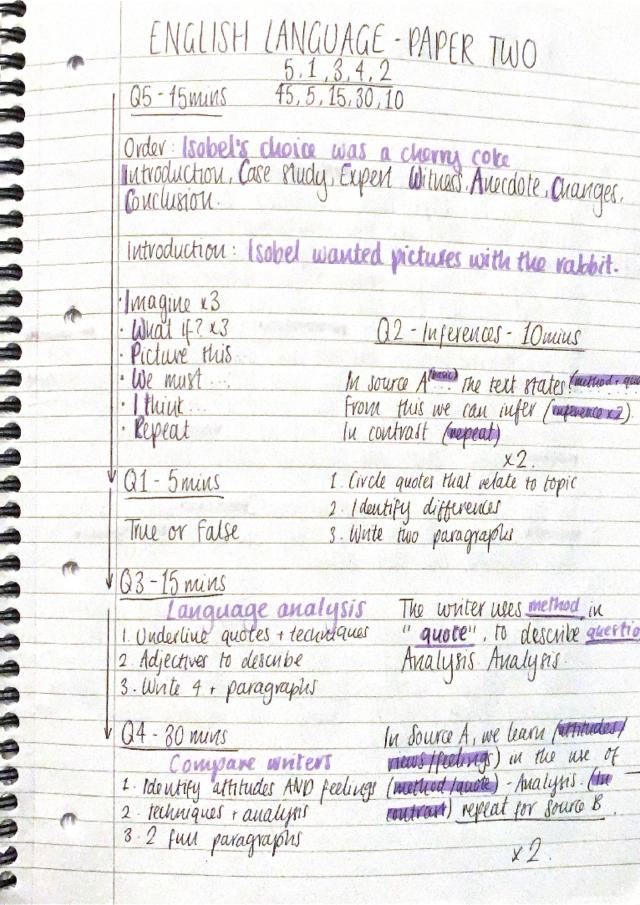 ENGLISH LANGUAGE - PAPER TWO
5, 1, 3, 4, 2
45, 5, 15, 30, 10
Q5 - 45mins
Order: Isobel's choice was a cherry coke
Introduction, Case study, Expert Witness, Anecdote, Changes,
Conclusion.
Introduction: Isobel wanted pictures with the rabbit.
· Imagine x3
· What if? x3
· Picture this
· We must ...
· I think ...
· Repeat
Q2 - Inferences - 10mins
In source A (basic) ... The text states (method + quo
From this we can infer (inference x2)
In contrast (repeat)
x2.
1. Circle quotes that relate to topic
2. Identify differences
3. Write two paragraphs
Q1 - 5mins
True or False
Q3 - 15 mins
Language analysis
1. Underline quotes + techniques
2. Adjectives to describe
3. Write 4 + paragraphs
The writer uses method in
"quote", to describe questio
Analysis Analysis.
Q4 - 30 mins
Compare writers
1. Identify attitudes AND feelings
2. Techniques + analysis
3. 2 full paragraphs
In Source A, we learn (attitudes/
views/feelings) in the use of
(method/quote) - Analysis. (In
contrast) repeat for source B.
x2.